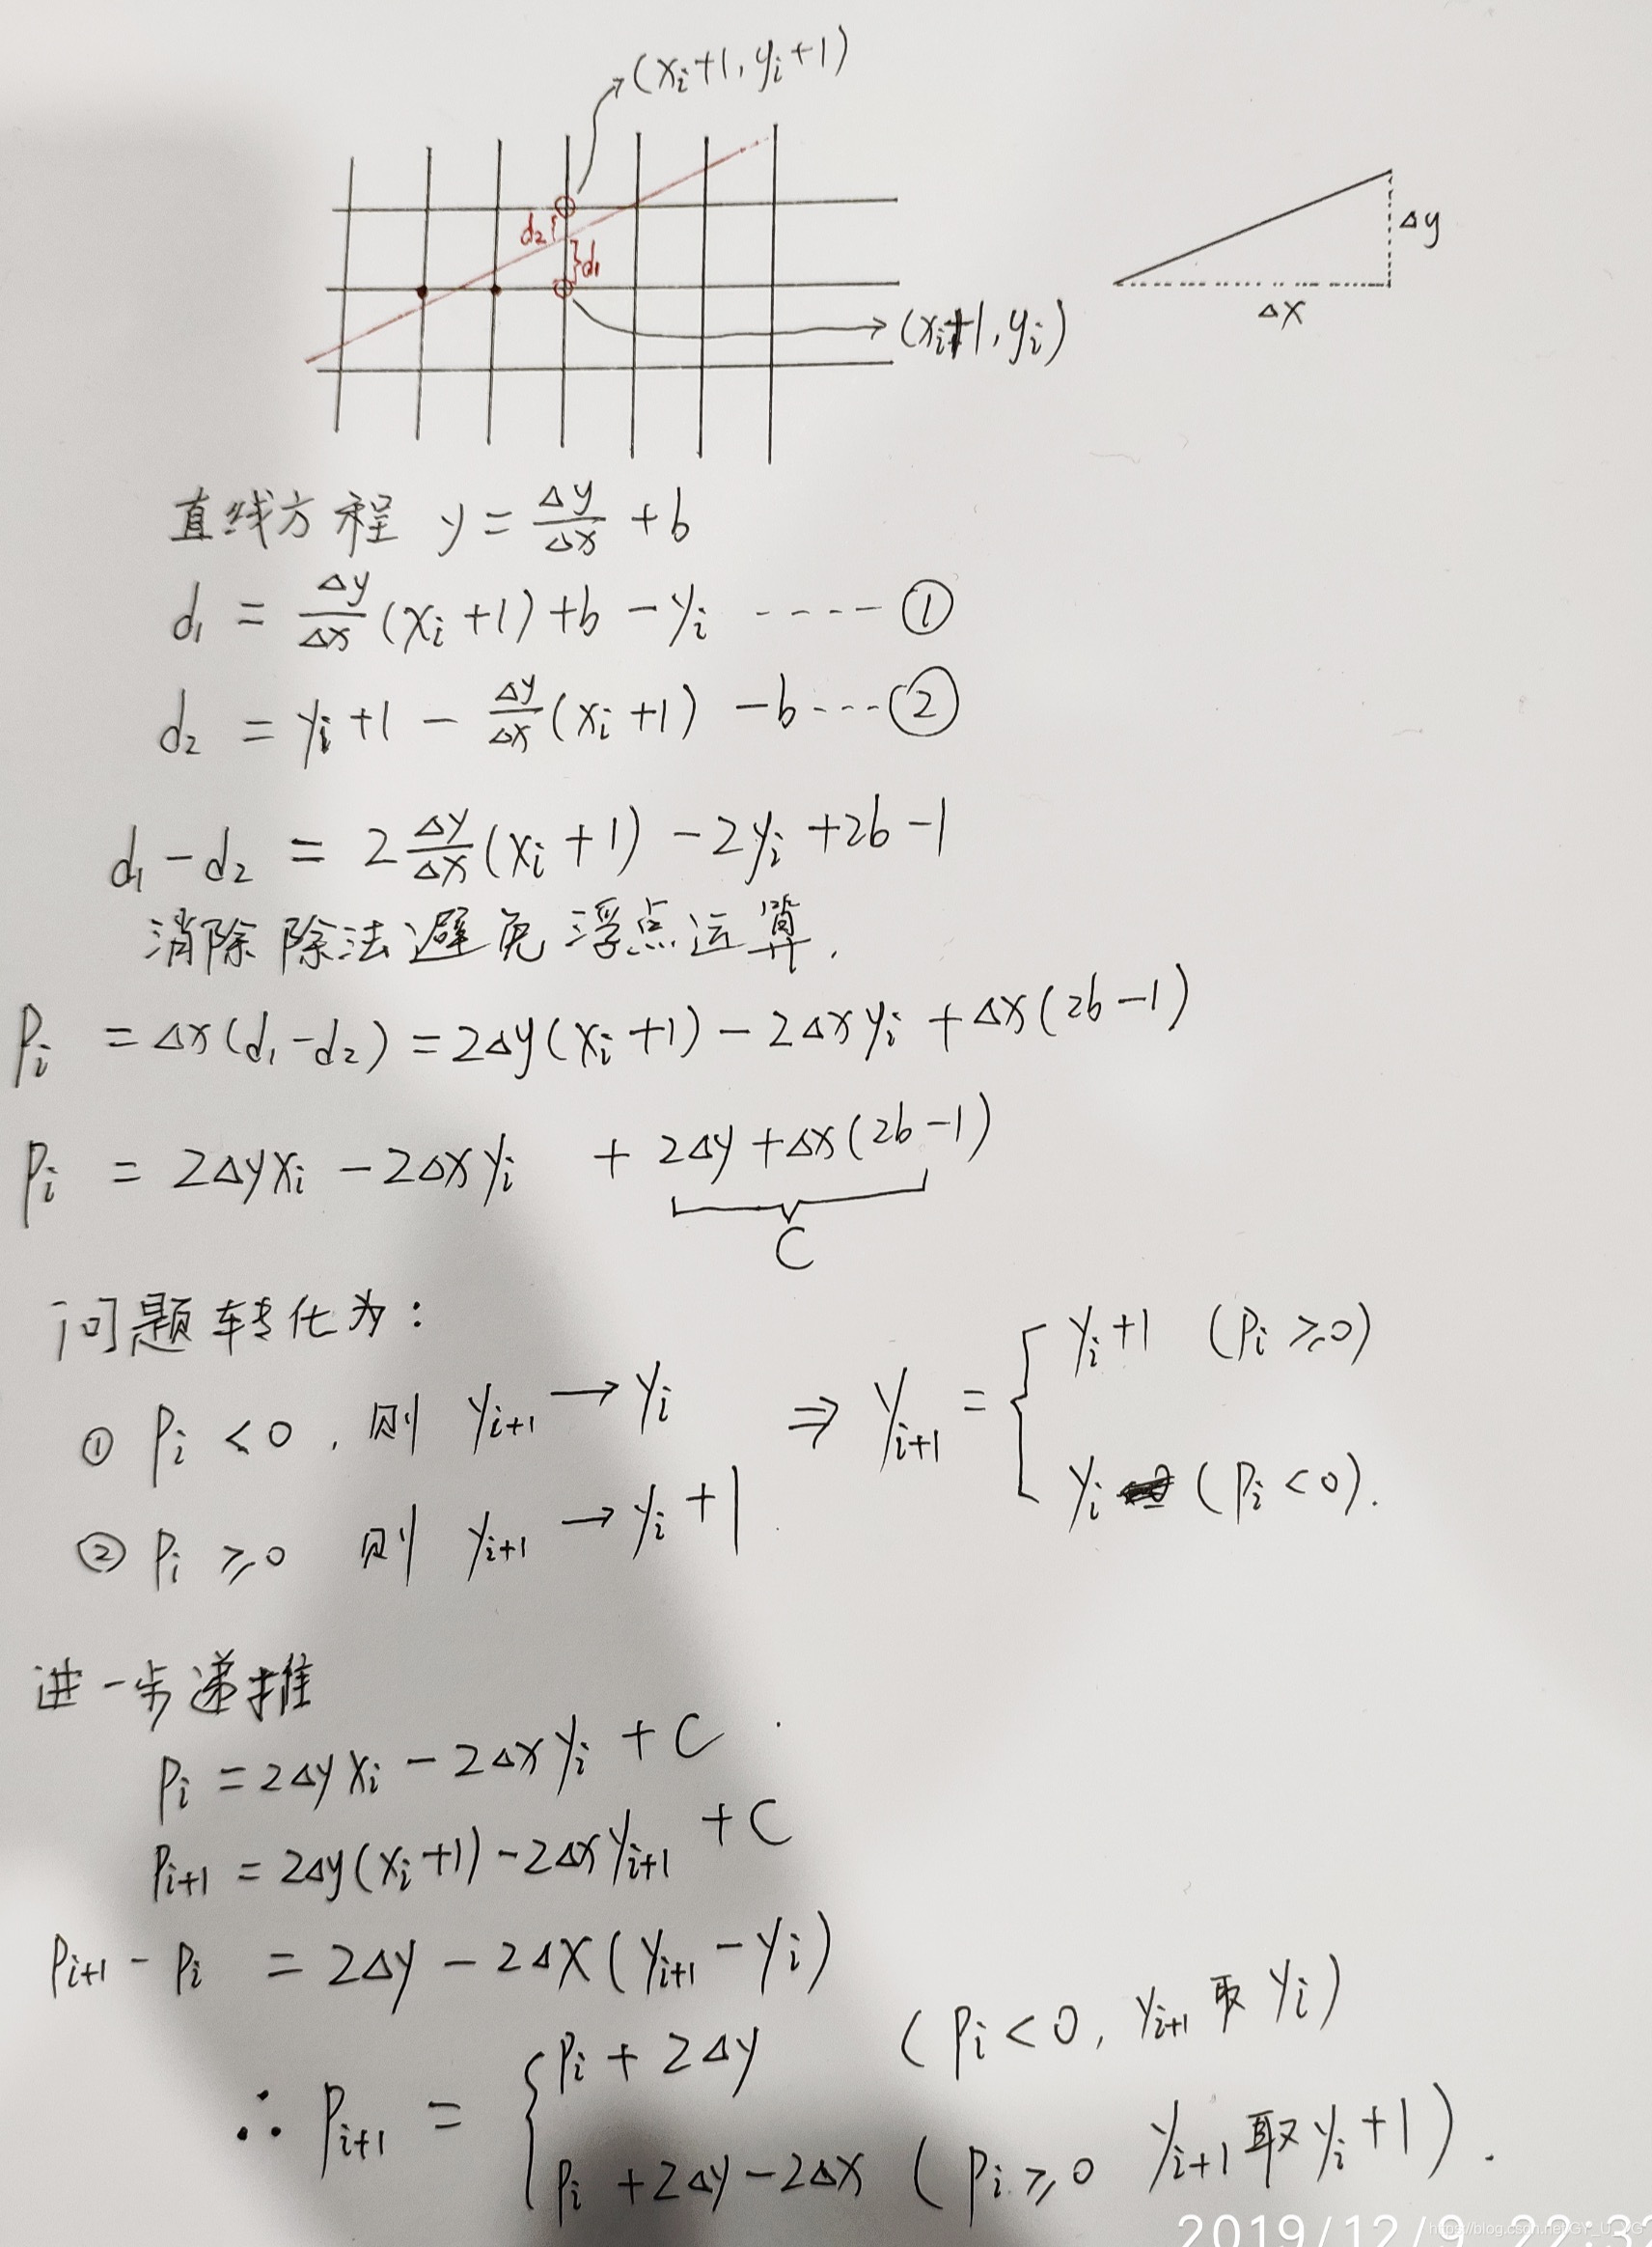 (xᵢ+1, yᵢ+1)
d₂
d₁
(xᵢ+1, yᵢ)
Δy
Δx
直线方程 y = Δy/Δx + b
d₁ = Δy/Δx (xᵢ+1) + b - yᵢ ----- ①
d₂ = yᵢ+1 - Δy/Δx (xᵢ+1) - b ---- ②
d₁ - d₂ = 2 Δy/Δx (xᵢ+1) - 2yᵢ + 2b - 1
消除除法避免浮点运算.
Pᵢ = Δx(d₁-d₂) = 2Δy(xᵢ+1) - 2Δxyᵢ + Δx(2b-1)
Pᵢ = 2Δyxᵢ - 2Δxyᵢ + 2Δy + Δx(2b-1)
C
问题转化为:
① Pᵢ < 0, 则 yᵢ₊₁ → yᵢ
② Pᵢ ≥ 0 则 yᵢ₊₁ → yᵢ+1
⇒ yᵢ₊₁ = { yᵢ+1 (Pᵢ ≥ 0)
yᵢ (Pᵢ < 0).
进一步递推
Pᵢ = 2Δyxᵢ - 2Δxyᵢ + C
Pᵢ₊₁ = 2Δy(xᵢ+1) - 2Δxyᵢ₊₁ + C
Pᵢ₊₁ - Pᵢ = 2Δy - 2Δx(yᵢ₊₁ - yᵢ)
∴ Pᵢ₊₁ = { Pᵢ + 2Δy (Pᵢ < 0, yᵢ₊₁ 取 yᵢ)
Pᵢ + 2Δy - 2Δx (Pᵢ ≥ 0 yᵢ₊₁ 取 yᵢ+1).
2019/12/9